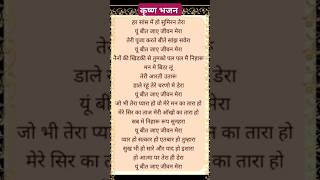 कृष्ण भजन
हर सांस में हो सुमिरन तेरा
यूं बीत जाए जीवन मेरा
तेरी पूजा करते बीते सांझ सवेरा
यूं बीत जाए जीवन मेरा
नैनों की खिड़की से तुमको पल पल में निहारू
मन मे बिठा लूं
तेरी आरती उतारू
डाले रहूं तेरे चरणो मे डेरा
यूं बीत जाए जीवन मेरा
जो भी तेरा प्यारा हो वो मेरे मन का तारा हो
मेरे सिर का ताज मेरी आँखो का तारा हो
सब में निहारू रूप सुनहरा
यूं बीत जाए जीवन मेरा
प्यार हो सत्कार हो एतबार हो तुम्हारा
सुख भी हो सारे और याद हो इशारा
हो आत्मा पर तेरा ही डेरा
यूं बीत जाए जीवन मेरा